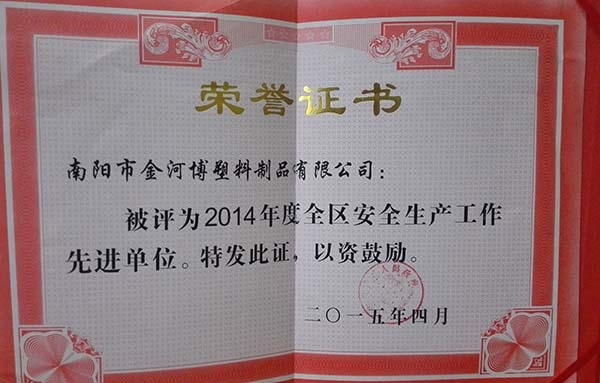 荣誉证书
南阳市金河博塑料制品有限公司：
被评为2014年度全区安全生产工作
先进单位。特发此证，以资鼓励。
二〇一五年四月